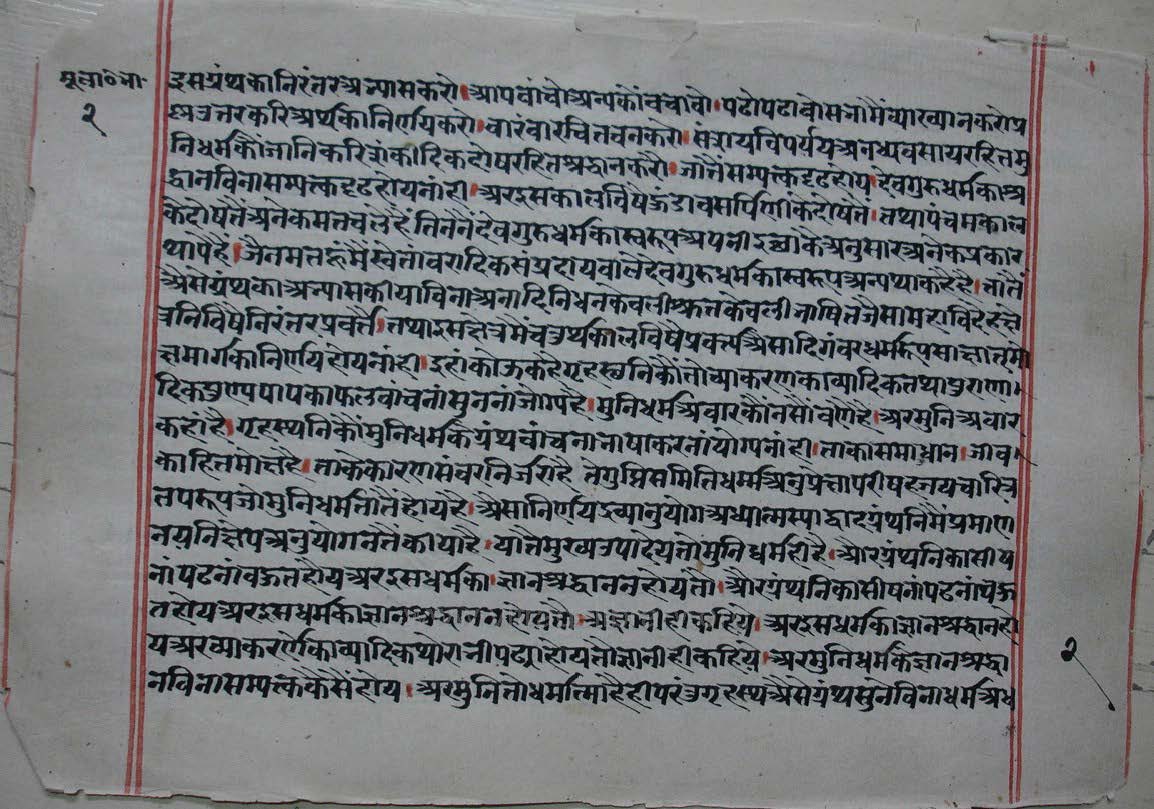 मूला०भा०
२
इसग्रंथकानिरंतरअभ्यासकरो। आपवांचोअन्यकोंवचावो। पढोपढावोसभामैंव्याख्यानकरोप्र
श्नउत्तरकरिअर्थकानिर्णयकरो। वारंवारचिंतवनकरो। संशयविपर्ययअनध्यवसायरहितमु
निधर्मकौंजानिकरिशंकादिकदोषरहितश्रद्धानकरो। जातैंसम्यक्तदृढहोय। देवगुरुधर्मकाश्र
द्धानविनासम्यक्तदृढहोयनांही। अरइसकालविषैऊंडावसर्पिणीकेदोषतैं। तथापंचमकाल
केदोषतैंअनेकमतचलेहैं तिननैंदेवगुरुधर्मकास्वरूपअपनीइच्छाकैअनुसारअनेकप्रकार
थापेहैं। जैनमतहूमैंस्वेतांवरादिकसंप्रदायवालेदेवगुरुधर्मकास्वरूपअन्यथाकहैहै। तातैं
अैसेग्रंथकाअभ्यासकीयाविनाअनादिनिधनकेवलीश्रुतकेवलीभाषितजैसामहाविदेहक्षे
त्रनिविषैनिरंतरप्रवर्त्तै। तथाइसक्षेत्रमैंचउर्थकालविषैप्रवर्त्त्याअैसादिगंवरधर्मरूपसाक्षात्मो
क्षमार्गकानिर्णयहोयनांही। इहांकोऊकहैगृहस्थनिकौंतोव्याकरणकाव्यादिकतथापुराणा।
दिकपुण्यपापकाफलवांचनांसुननांजोग्यहै। मुनिधर्मअवारकौंनसौंवणैहै। अरमुनिअवार
कहांहै। गृहस्थनिकौंमुनिधर्मकेग्रंथवांचनाभाषाकरनांयोग्यनांही। ताकासमाधान। जीव।
काहितमोक्षहै। ताकेकारणसंवरनिर्जराहै तेगुप्तिसमितिधर्मअनुप्रेक्षापरीषहजयचारित्र
तपरूपजोमुनिधर्मतातैंहोयहै। अैसानिर्णयद्रव्यानुयोगअध्यात्मस्याद्वादग्रंथनिमैंप्रमाण
नयनिक्षेपअनुयोगनतैंकीयाहै। यातैंमुख्यउपादेयतोमुनिधर्महीहै। औरग्रंथनिकासीष
नांपढनांवऊतहोयअरइसधर्मका। ज्ञानश्रद्धाननहोयतो। औरग्रंथनिकासीषनांपढनांवऊ
तहोयअरइसधर्मकाज्ञानश्रद्धाननहोयतो। अज्ञानीहीकहिये। अरइसधर्मकाज्ञानश्रद्धानहो
यअरव्याकरणकाव्यादिकथोरानीपढ्याहोयतोज्ञानीहीकहिये। अरमुनिधर्मकेज्ञानश्रद्धा
नविनासम्यक्तकैसैंहोय। अरमुनितोधर्मात्माहैहीपरंतुगृहस्थअैसेग्रंथसुनेविनाधर्मअध
२